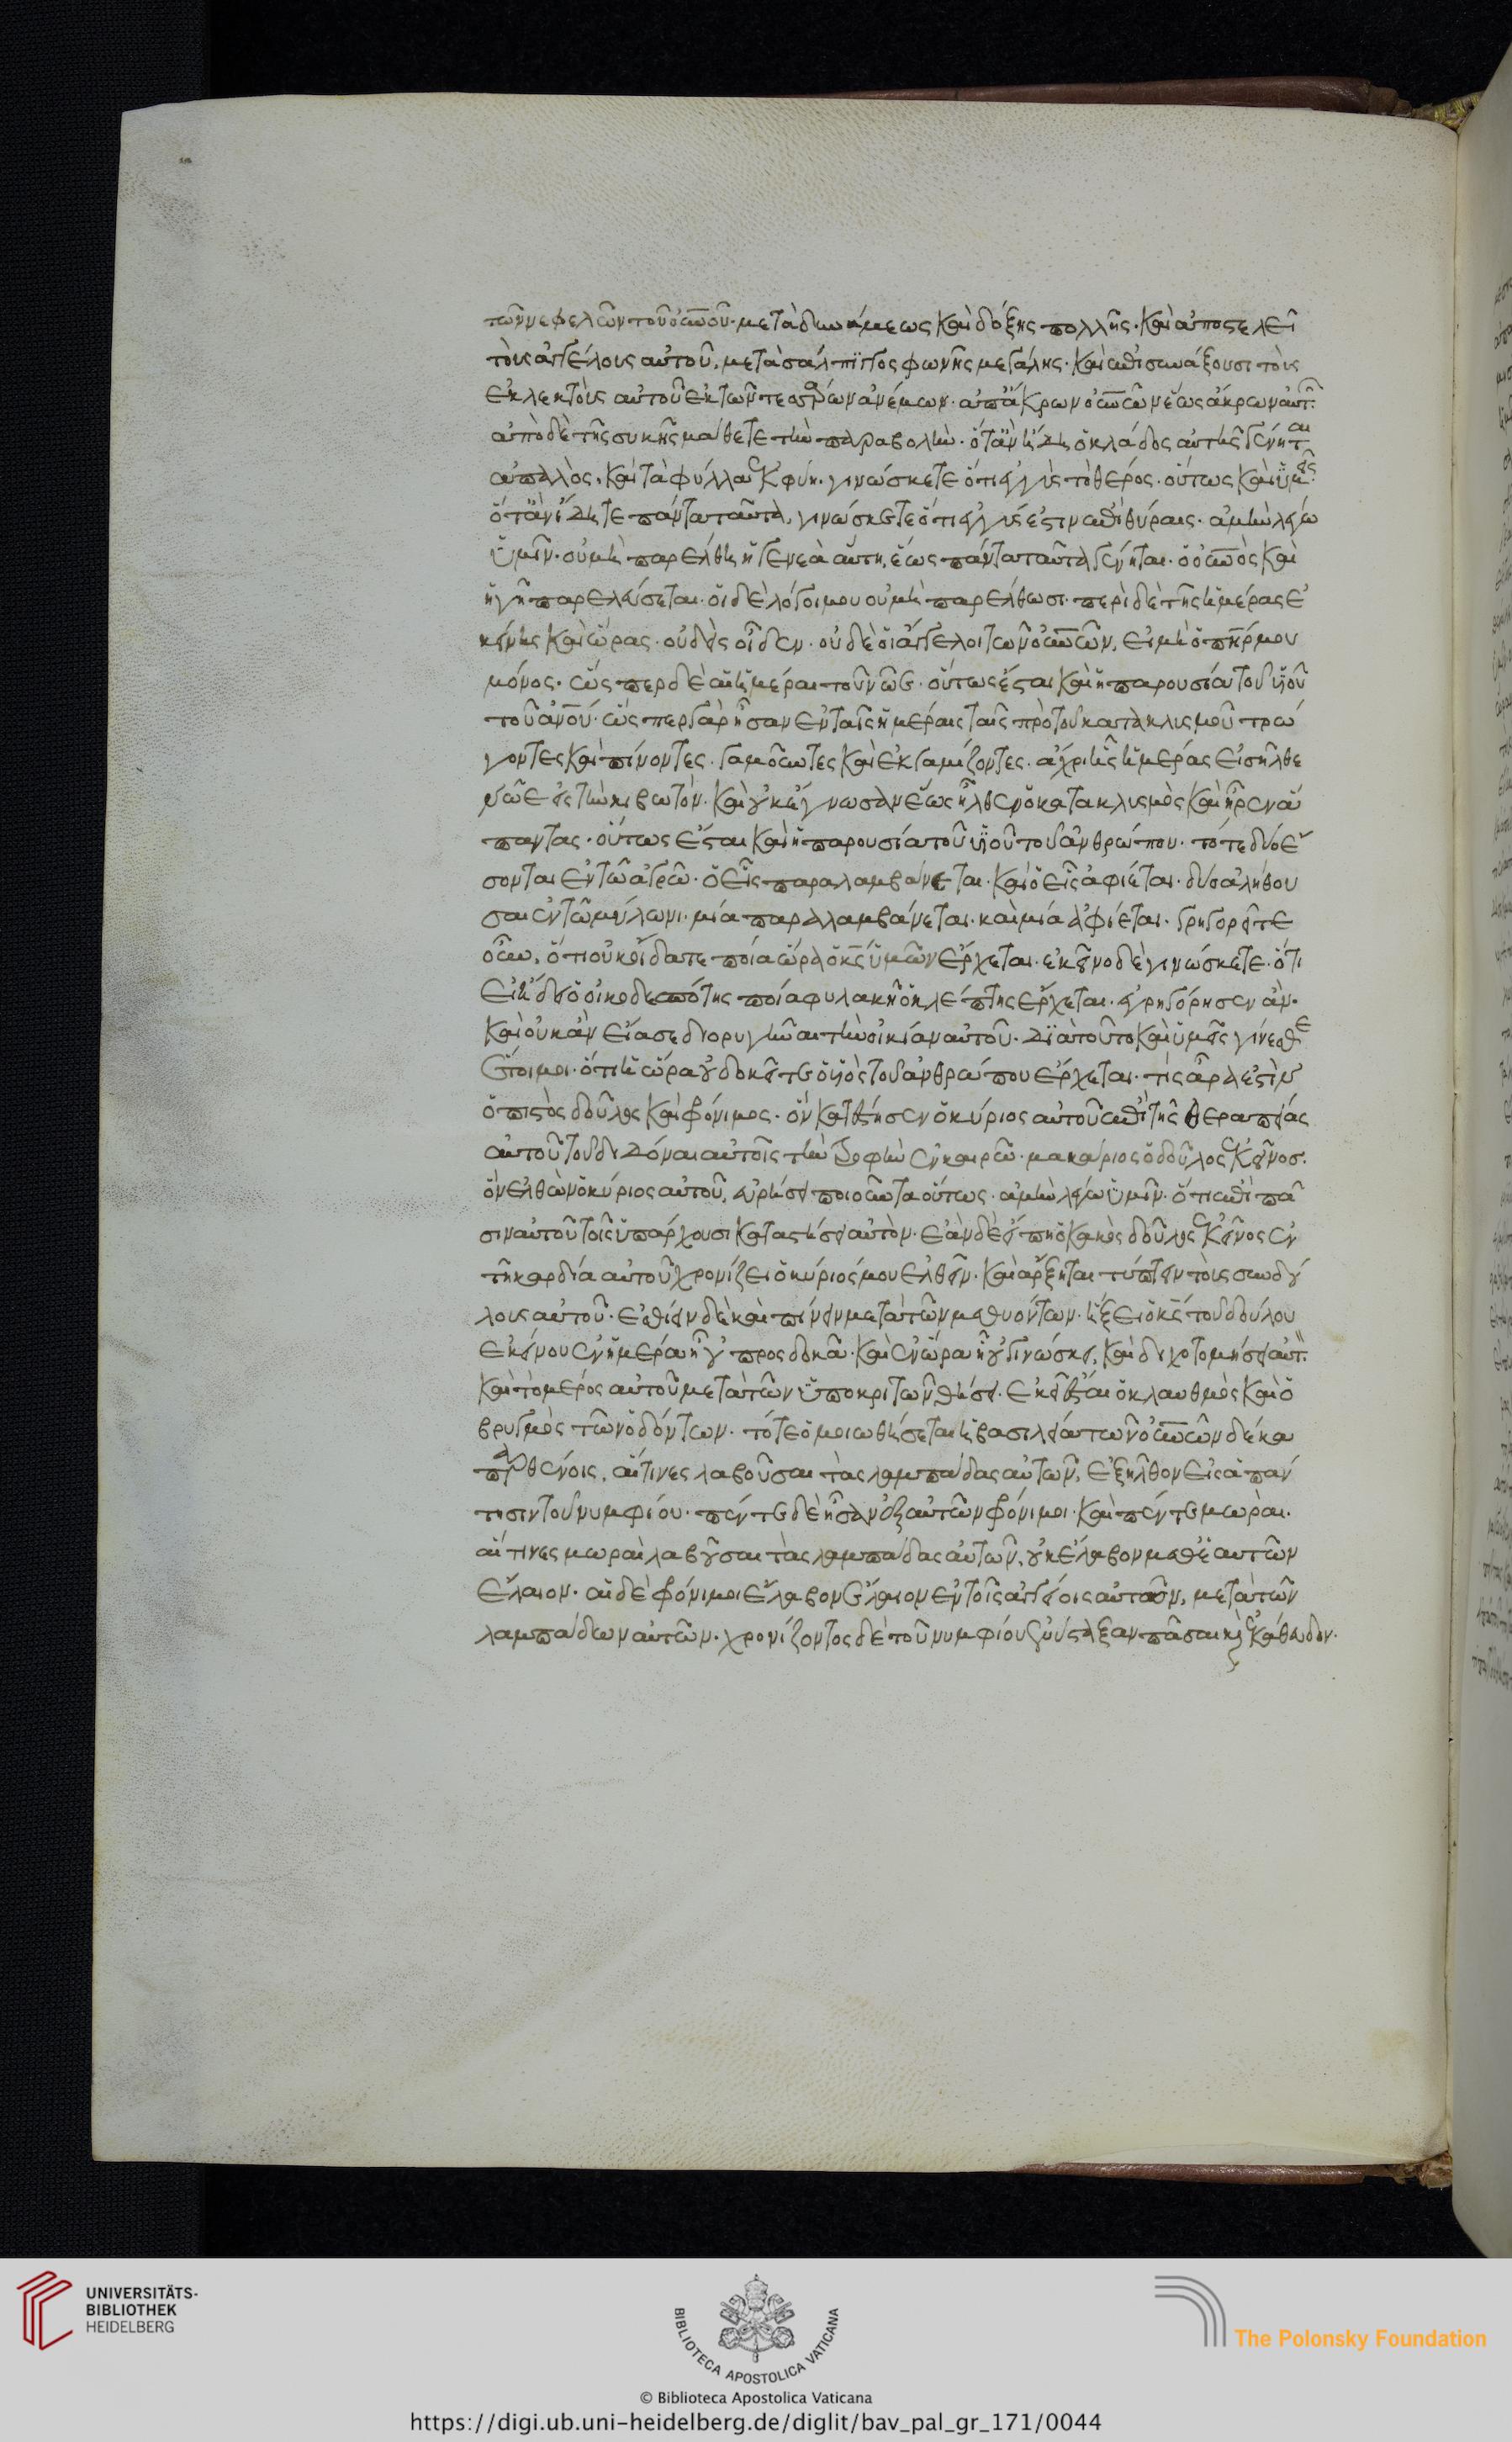 τῶν νεφελῶν τοῦ οὐνοῦ· μετὰ δυνάμεως καὶ δόξης πολλῆς· καὶ ἀποστελεῖ
τοὺς ἀγγέλους αὐτοῦ, μετὰ σάλπιγγος φωνῆς μεγάλης· καὶ ἐπισυνάξουσι τοὺς
ἐκλεκτοὺς αὐτοῦ ἐκ τῶν τεσσάρων ἀνέμων· ἀπ' ἄκρων οὐνῶν ἕως ἄκρων αὐτ.
ἀπὸ δὲ τῆς συκῆς μάθετε τὴν παραβολήν· ὅταν ἤδη ὁ κλάδος αὐτῆς γένηται
ἁπαλὸς, καὶ τὰ φύλλα ἐκφύη· γινώσκετε ὅτι ἐγγὺς τὸ θέρος· οὕτως καὶ ὑμεῖς
ὅταν ἴδητε πάντα ταῦτα, γινώσκετε ὅτι ἐγγύς ἐστιν ἐπὶ θύραις· ἀμὴν λέγω
ὑμῖν· οὐ μὴ παρέλθη ἡ γενεὰ αὕτη, ἕως πάντα ταῦτα γένηται· ὁ οὐνὸς καὶ
ἡ γῆ παρελεύσεται· οἱ δὲ λόγοι μου οὐ μὴ παρέλθωσι· περὶ δὲ τῆς ἡμέρας ἐ
κείνης καὶ ὥρας· οὐδεὶς οἶδεν· οὐδὲ οἱ ἄγγελοι τῶν οὐνῶν, εἰ μὴ ὁ πηρ μου
μόνος· ὥσπερ δὲ αἱ ἡμέραι τοῦ νῶε· οὕτως ἔσται καὶ ἡ παρουσία τοῦ υἱοῦ
τοῦ ἀνοῦ· ὥσπερ γὰρ ἦσαν ἐν ταῖς ἡμέραις ταῖς πρὸ τοῦ κατακλισμοῦ τρώ
γοντες καὶ πίνοντες· γαμοῦντες καὶ ἐκγαμίζοντες· ἄχρι ἧς ἡμέρας εἰσῆλθε
νῶε εἰς τὴν κιβωτόν· καὶ οὐκ ἔγνωσαν ἕως ἦλθεν ὁ κατακλισμὸς καὶ ἦρεν ἅ
παντας· οὕτως ἔσται καὶ ἡ παρουσία τοῦ υἱοῦ τοῦ ἀνθρώπου· τότε δύο ἔ
σονται ἐν τῶ ἀγρῶ· ὁ εἷς παραλαμβάνεται· καὶ ὁ εἷς ἀφίεται· δύο ἀλήθου
σαι ἐν τῶ μύλωνι· μία παραλαμβάνεται· καὶ μιὰ ἀφίεται· γρηγορεῖτε
οὖν, ὅτι οὐκ οἴδατε ποία ὥρα ὁ κς ὑμῶν ἔρχεται· ἐκεῖνο δὲ γινώσκετε· ὅτι
εἰ ἤδει ὁ οἰκοδεσπότης ποία φυλακῆ ὁ κλέπτης ἔρχεται· ἐγρηγόρησεν ἄν·
καὶ οὐκ ἂν εἴασε διορυγῆναι τὴν οἰκίαν αὐτοῦ· διὰ τοῦτο καὶ ὑμεῖς γίνεσθε
ἕτοιμοι· ὅτι ἧ ὥρα οὐ δοκεῖτε ὁ υἱὸς τοῦ ἀνθρώπου ἔρχεται· τίς ἄρα ἐστὶν
ὁ πιστὸς δοῦλος καὶ φρόνιμος· ὃν κατέστησεν ὁ κύριος αὐτοῦ ἐπὶ τῆς θεραπείας
αὐτοῦ τοῦ διδόναι αὐτοῖς τὴν τροφὴν ἐν καιρῶ· μακάριος ὁ δοῦλος ἐκεῖνος·
ὃν ἐλθὼν ὁ κύριος αὐτοῦ, εὑρήσει ποιοῦντα οὕτως· ἀμὴν λέγω ὑμῖν· ὅτι ἐπὶ πᾶ
σιν αὐτοῦ τοῖς ὑπάρχουσι καταστήσει αὐτόν· ἐὰν δὲ εἴπη ὁ κακὸς δοῦλος ἐκεῖνος ἐν
τῆ καρδία αὐτοῦ χρονίζει ὁ κύριός μου ἐλθεῖν· καὶ ἄρξηται τύπτειν τοὺς συνδού
λους αὐτοῦ· ἐσθίειν δὲ καὶ πίνειν μετὰ τῶν μεθυόντων· ἥξει ὁ κς τοῦ δούλου
ἐκείνου ἐν ἡμέρα ἧ οὐ προσδοκᾶ· καὶ ἐν ὥρα ἧ οὐ γινώσκει, καὶ διχοτομήσει αὐτ.
καὶ τὸ μέρος αὐτοῦ μετὰ τῶν ὑποκριτῶν θήσει· ἐκεῖ ἔσται ὁ κλαυθμὸς καὶ ὁ
βρυγμὸς τῶν ὀδόντων· τότε ὁμοιωθήσεται ἡ βασιλεία τῶν οὐνῶν δέκα
παρθένοις, αἵτινες λαβοῦσαι τὰς λαμπάδας αὐτῶν, ἐξῆλθον εἰς ἀπάν
τησιν τοῦ νυμφίου· πέντε δὲ ἦσαν ἐξ αὐτῶν φρόνιμοι· καὶ πέντε μωραί·
αἵτινες μωραὶ λαβοῦσαι τὰς λαμπάδας αὐτῶν, οὐκ ἔλαβον μεθ' ἑαυτῶν
ἔλαιον· αἱ δὲ φρόνιμοι ἔλαβον ἔλαιον ἐν τοῖς ἀγγείοις αὐτῶν, μετὰ τῶν
λαμπάδων αὐτῶν· χρονίζοντος δὲ τοῦ νυμφίου ἐνύσταξαν πᾶσαι καὶ ἐκάθευδον·
UNIVERSITÄTS-
BIBLIOTHEK
HEIDELBERG
BIBLIOTECA APOSTOLICA VATICANA
The Polonsky Foundation
© Biblioteca Apostolica Vaticana
https://digi.ub.uni-heidelberg.de/diglit/bav_pal_gr_171/0044